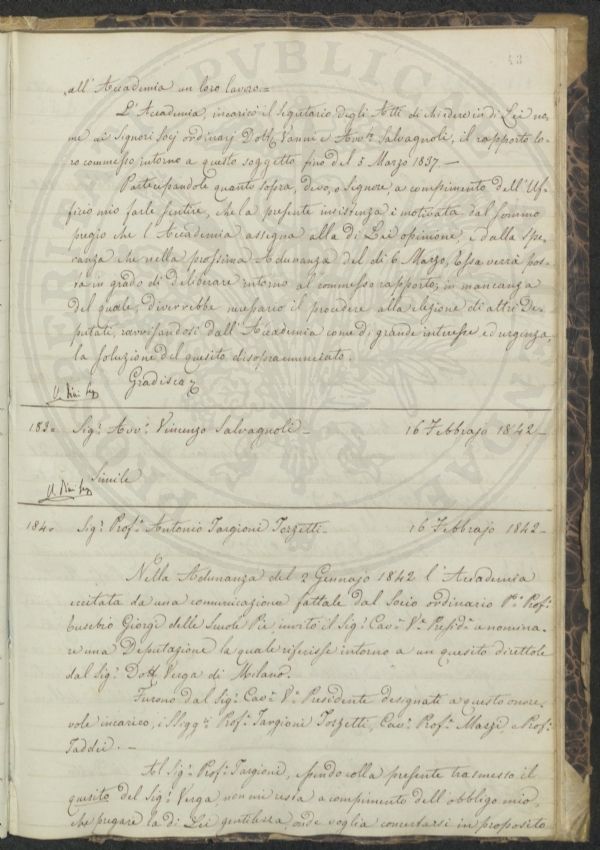 43
all'Accademia un loro lavoro.=
L'Accademia, incaricò il Segretario degli Atti di chiedere in di Lei no-
me ai Signori Socj ordinarj Dott. Vanni e Avv.to Salvagnoli, il rapporto lo-
ro commesso intorno a questo soggetto fino del 5 Marzo 1837.—
Partecipandole quanto sopra, devo, o Signore, a compimento dell'Uf-
ficio mio farle sentire, che la presente insistenza è motivata dal sommo
pregio che l'Accademia assegna alla di Lei opinione, e dalla spe-
ranza che nella prossima Adunanza del dì 6 Marzo, Essa verrà pos-
ta in grado di deliberare intorno al commesso rapporto, in mancanza
del quale, diverrebbe necessario il procedere alla elezione di altri De-
putati, ravvisandosi dall'Accademia come di grande interesse ed urgenza,
la soluzione del quesito disopraenunciato.
Gradisca
183. Sig.r Avv.o Vincenzo Salvagnoli— 16 Febbrajo 1842—
Simile
184. Sig.r Prof.e Antonio Targioni Tozzetti— 16 Febbrajo 1842—
Nella Adunanza del 2 Gennajo 1842 l'Accademia
eccitata da una comunicazione fattale dal Socio ordinario P.e Prof.e
Eusebio Giorgi delle Scuole Pie invitò il Sig.r Cav.e V.e Presid.e a nomina-
re una Deputazione la quale riferisse intorno a un quesito direttole
dal Sig.r Dott. Verga di Milano.
Furono dal Sig.r Cav.e V.e Presidente designati a questo onore-
vole incarico, i SSigg.ri Prof.e Targioni Tozzetti, Cav.e Prof.e Mazzi, e Prof.e
Taddei.—
Al Sig.r Prof.e Targioni, essendo colla presente trasmesso il
quesito del Sig.r Verga, non mi resta a compimento dell'obbligo mio,
che pregare la di Lei gentilezza, onde voglia concertarsi in proposito